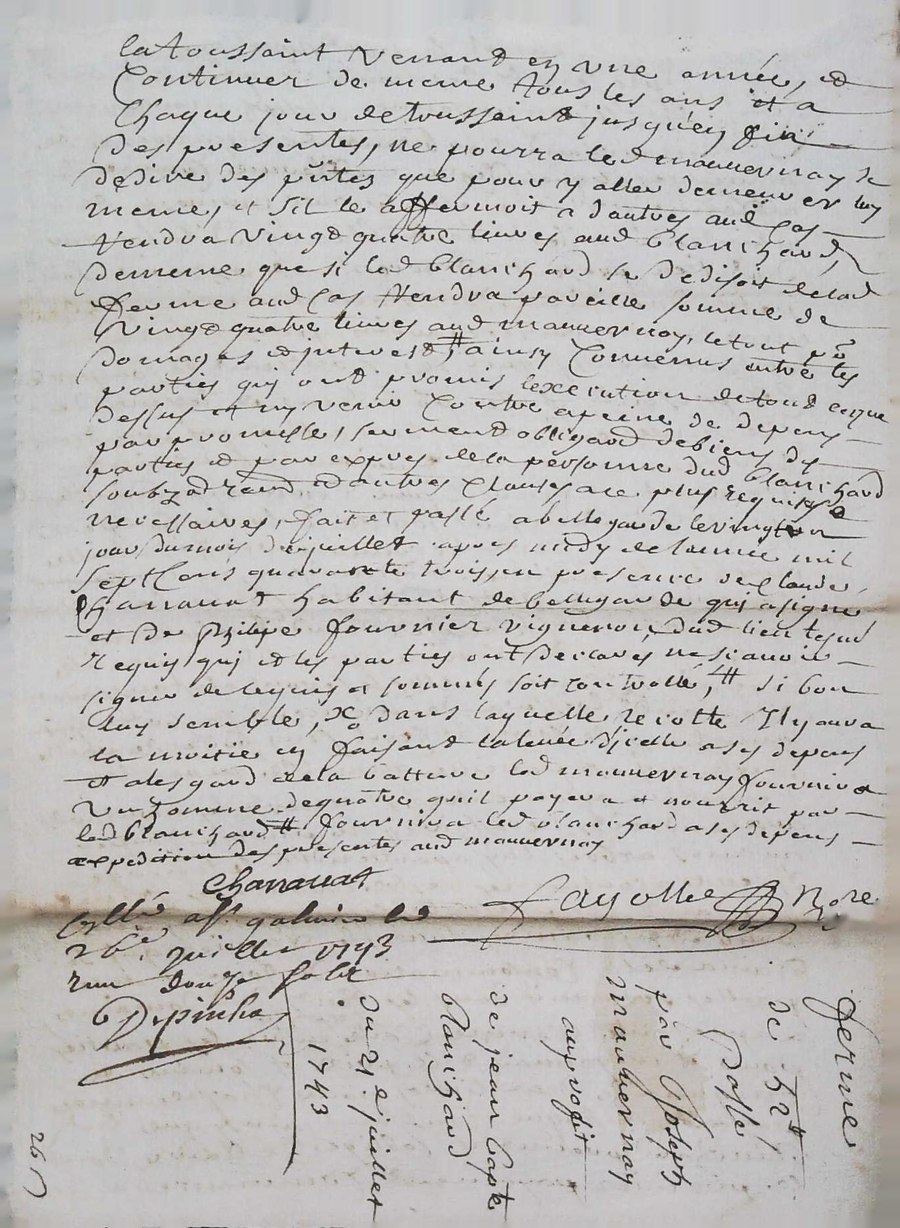 la toussaint venant en une année, et
Continuer de meme tous les ans et a
Chaque jour de toussaint jusqu'en fin
des presentes, ne pourra led mauvernay se
dedire des pntes que pour y aller demeurer luy
meme, et s'il le affermoit a d'autres aud cas
tendra vingt quatre livres aud blanchard,
de meme que si led blanchard se dedisoit de lad
ferme aud cas tendra pareille somme de
vingt quatre livres aud mauvernay, le tout po
domages et interest # ainsy Convenus entre les
parties qui ont promis lexecution de tout ce que
dessus et ny venir Contre a peine de depens
par promesse, serment obligaôn de biens des
parties et par expres de la personne dud blanchard
soubz et autres Clauses a ce plus requises &
necessaires, fait et passé a bellegarde le vingt un
jour du mois de juillet apres midy de lannee mil
sept Cens quarante trois, en presence de Claude
Chanavat habitant de bellegarde qui a signé
et de Philipe fournier vigneron dud lieu tesm
requis qui et les parties ont declares ne scavoir
signer de ce requis et sommés soit controllé, # si bon
luy semble, Xo dans laquelle recolte Il y aura
la moitié en faisant la levée d'icelle a ses depens
et alesgard de la batture led mauvernay fournira
un homme de quatre qu'il payera et nourrit par
led blanchard # fournira led blanchard a ses depens
expedition des presentes aud mauvernay
Chanavat
fayolle Nore
Cllé a St galmier le
26e juillet 1743
douze sols
Depinha
ferme
de hrd
Passé
par Joseph
mauvernay
au profit
de jean bapte
blanchard
du 21e juillet
1743